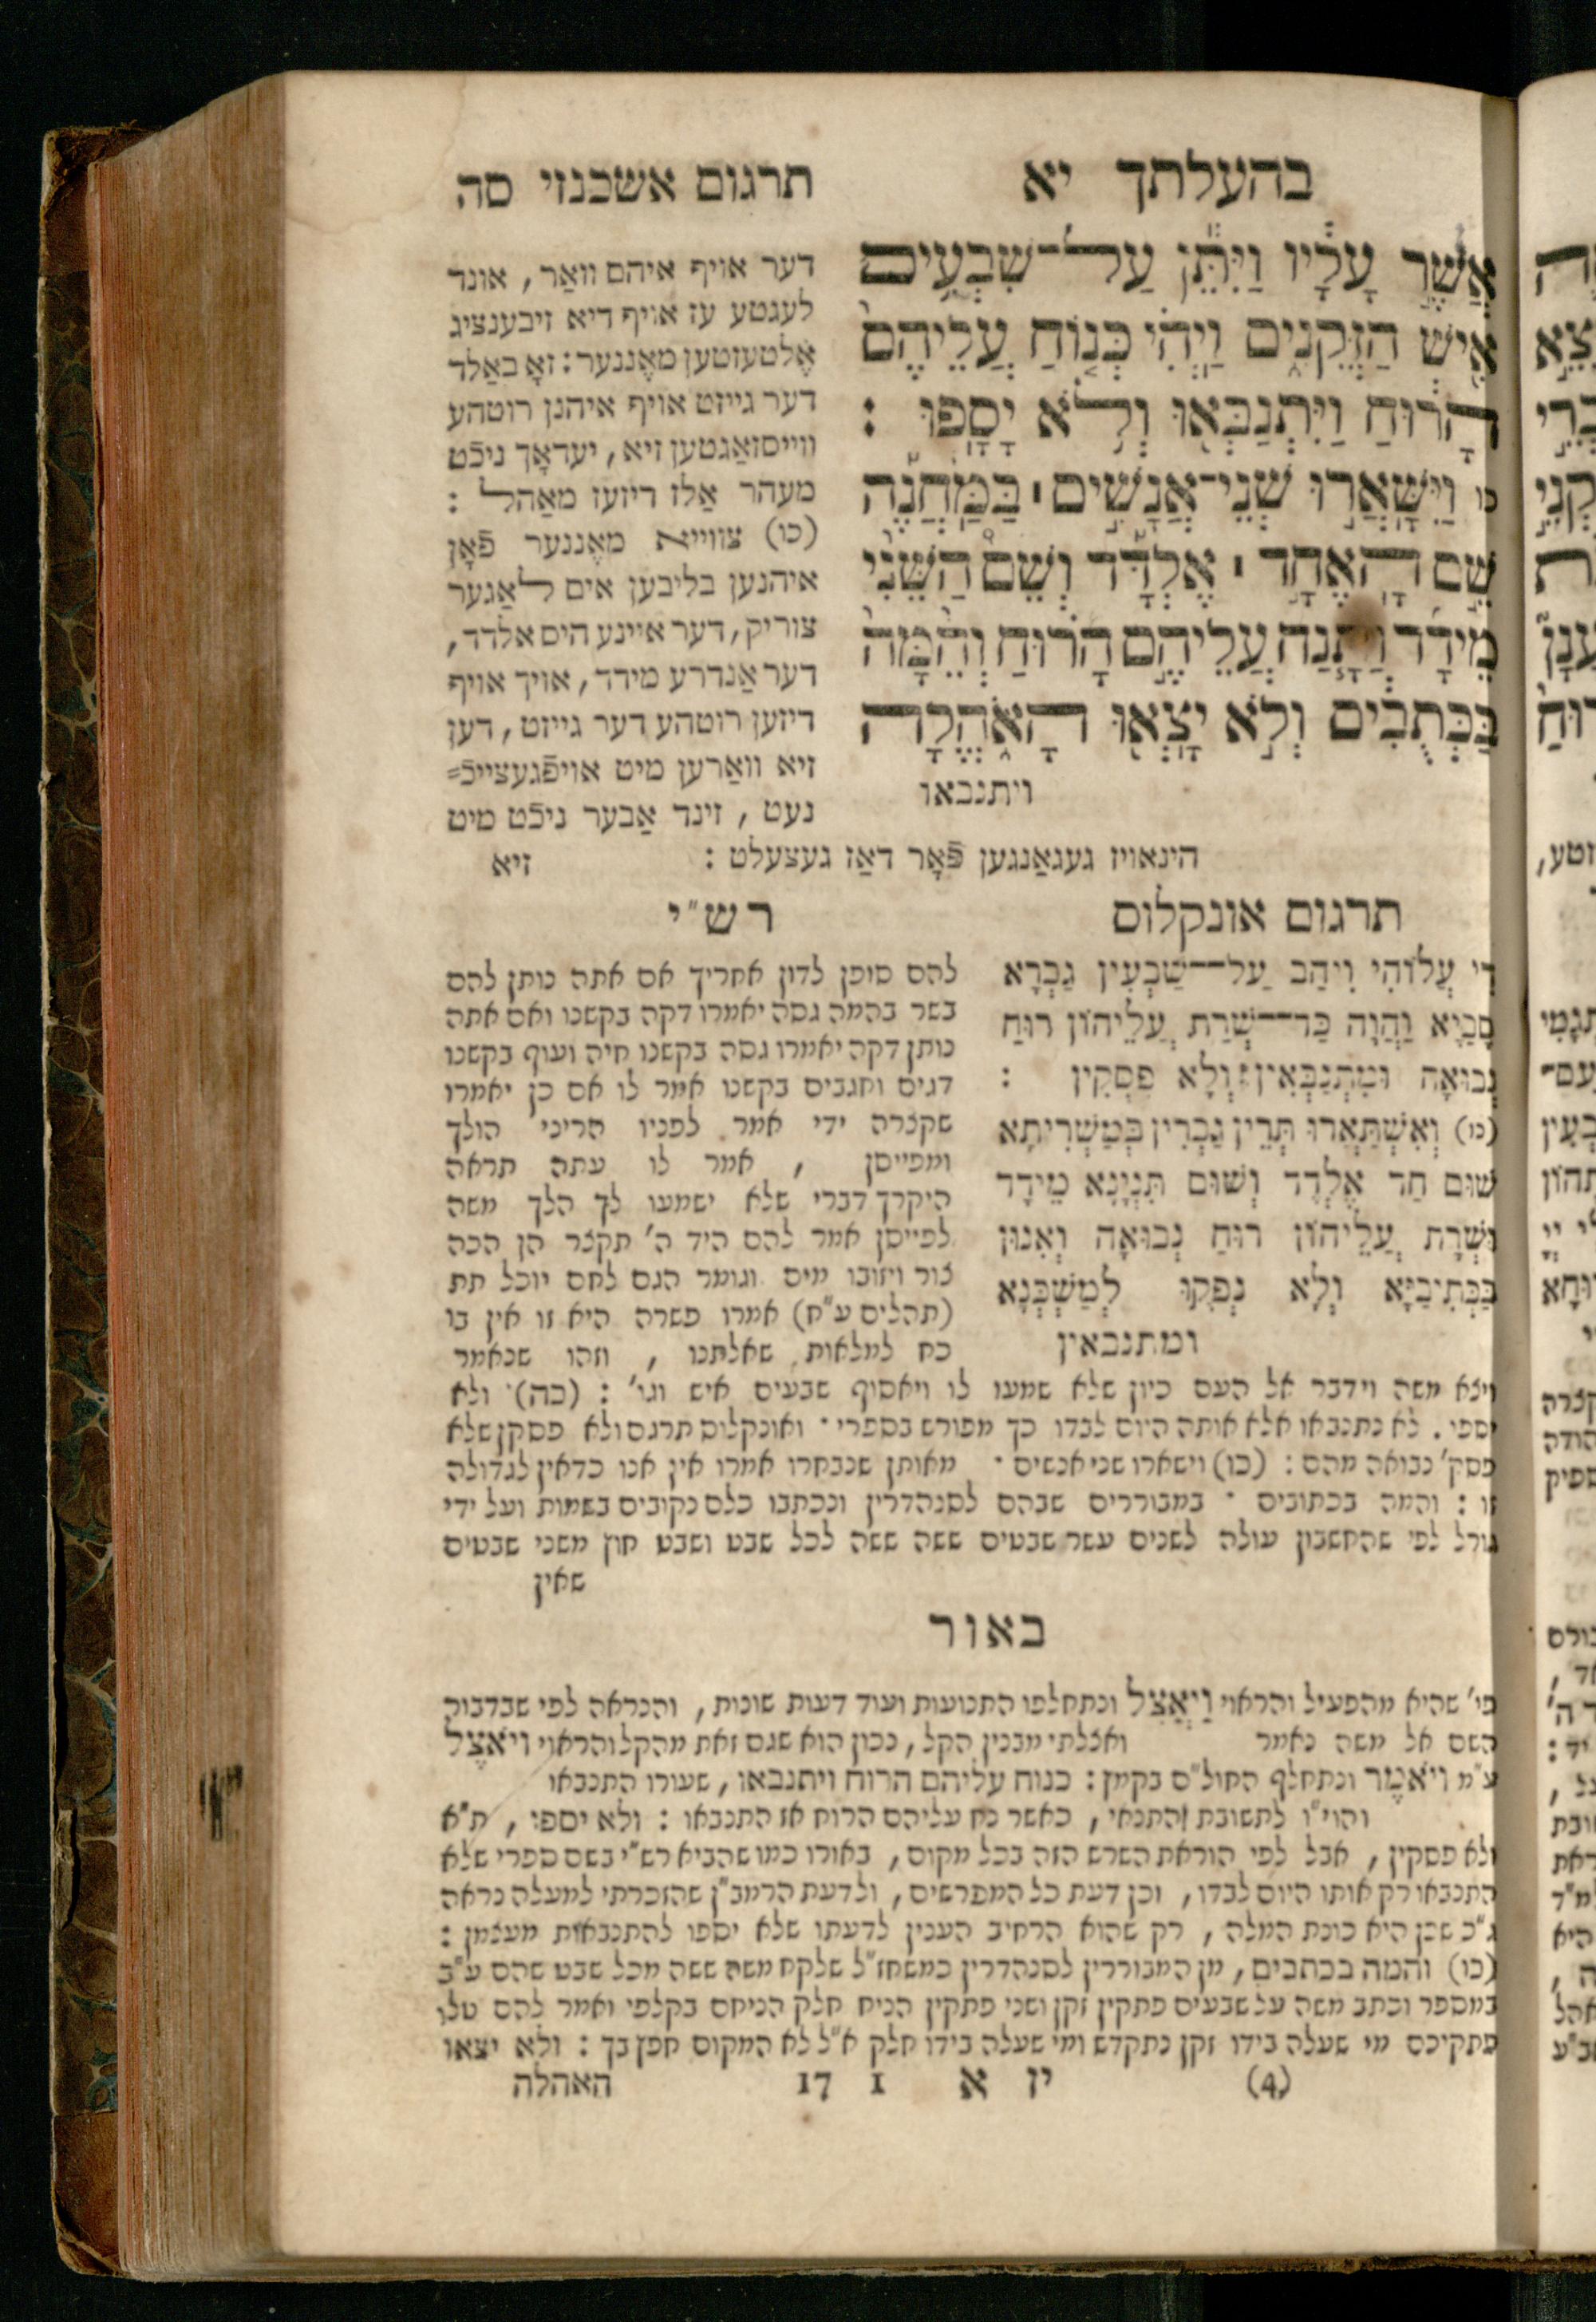 בהעלתך יא
תרגום אשכנזי סה
אֲשֶׁר עָלָיו וַיִּתֵּן עַל־שִׁבְעִים
אִישׁ הַזְּקֵנִים וַיְהִי כְּנוֹחַ עֲלֵיהֶם
הָרוּחַ וַיִּתְנַבְּאוּ וְלֹא יָסָפוּ :
כו וַיִּשָּׁאֲרוּ שְׁנֵי־אֲנָשִׁים ׀ בַּמַּחֲנֶה
שֵׁם הָאֶחָד ׀ אֶלְדָּד וְשֵׁם הַשֵּׁנִי
מֵידָד וַתָּנַח עֲלֵיהֶם הָרוּחַ וְהֵמָּה
בַּכְּתֻבִים וְלֹא יָצְאוּ הָאֹהֱלָה
ויתנבאו
דער אויף איהם וואַר, אונד
לעגטע עז אויף דיא זיבענציג
אֶלטעזטען מאֶננער: זאָ באַלד
דער גייזט אויף איהנן רוטהע
ווייסזאַגטען זיא, יעדאָך ניכֿט
מעהר אַלז דיזעז מאַהל :
(כו) צווייא מאֶננער פֿאָן
איהנען בליבען אים לאַגער
צוריק, דער איינע היס אלדד,
דער אַנדרע מידד, אויך אויף
דיזען רוטהע דער גייזט, דען
זיא וואַרען מיט אויפֿגעצייכֿ=
נעט, זינד אַבער ניכֿט מיט
הינאויז געגאַנגען פֿאָר דאַז געצעלט :
זיא
תרגום אונקלוס
דִי עֲלוֹהִי וִיהַב עַל־שַׁבְעִין גַבְרָא
סָבַיָא וַהֲוָה כַּד־שְׁרַת עֲלֵיהוֹן רוּחַ
נְבוּאָה וּמִתְנַבְּאִין וְלָא פַסְקִין :
(כו) וְאִשְׁתְּאָרוּ תְּרֵין גַבְרִין בְּמַשְׁרִיתָא
שׁוּם חַד אֶלְדָד וְשׁוּם תִּנְיָנָא מֵידָד
וּשְׁרַת עֲלֵיהוֹן רוּחַ נְבוּאָה וְאִנוּן
בַּכְּתִיבַיָּא וְלָא נְפָקוּ לְמַשְׁכְּנָא
ומתנבאין
רש״י
להם סופן לדון אחריך אם אתה נותן להם
בשר בהמה גסה יאמרו דקה בקשנו ואם אתה
נותן דקה יאמרו גסה בקשנו חיה ועוף בקשנו
דגים וחגבים בקשנו אמר לו אם כן יאמרו
שקצרה ידי אמר לפניו הריני הולך
ומפייסן , אמר לו עתה תראה
היקרך דברי שלא ישמעו לך הלך משה
לפייסן אמר להם היד ה' תקצר הן הכה
צור ויזובו מים וגומר הגם לחם יוכל תת
(תהלים ע״ח) אמרו פשרה היא זו אין בו
כח למלאות שאלתנו , וזהו שנאמר
ויצא משה וידבר אל העם כיון שלא שמעו לו ויאסוף שבעים איש וגו' : (כה) ולא
יספו . לא נתנבאו אלא אותה היום לבדו כך מפורש בספרי · ואונקלוס תרגם ולא פסקן שלא
פסק' נבואה מהם : (כו) וישארו שני אנשים · מאותן שנבחרו אמרו אין אנו כדאין לגדולה
זו : והמה בכתובים · במבוררים שבהם לסנהדרין ונכתבו כלם נקובים בשמות ועל ידי
גורל לפי שהחשבון עולה לשנים עשר שבטים ששה ששה לכל שבט ושבט חוץ משני שבטים
שאין
באור
פו' שהיא מהפעיל והראוי וַיַּאֲצֵל ונתחלפו התנועות ועוד דעות שונות, והנראה לפי שבדבור
השם אל משה נאמר ואצלתי מבנין הקל, נכון הוא שגם זאת מהקל והראוי ויאֹצֶל
ע״מ ויאֹמֶר ונתחלף החול״ם בקמן: כנוח עליהם הרוח ויתנבאו, שעורו התנבאו
והוי״ו לתשובת התנאי, כאשר נח עליהם הרוח אז התנבאו : ולא יספו , ת״א
ולא פסקין , אבל לפי הוראת השרש הזה בכל מקום, באורו כמו שהביא רש״י בשם ספרי שלא
התנבאו רק אותו היום לבדו, וכן דעת כל המפרשים, ולדעת הרמב״ן שהזכרתי למעלה נראה
ג״כ שכן היא כונת המלה, רק שהוא הרחיב הענין לדעתו שלא יספו להתנבאות מעצמן :
(כו) והמה בכתבים, מן המבוררין לסנהדרין כמשחז״ל שלקח משה ששה מכל שבט שהם ע״ב
במספר וכתב משה על שבעים פתקין זקן ושני פתקין הניח חלק הניחם בקלפי ואמר להם טלו
פתקיכם מי שעלה בידו זקן נתקדש ומי שעלה בידו חלק א״ל לא המקום חפץ בך : ולא יצאו
(4) ין א 1 17 האהלה